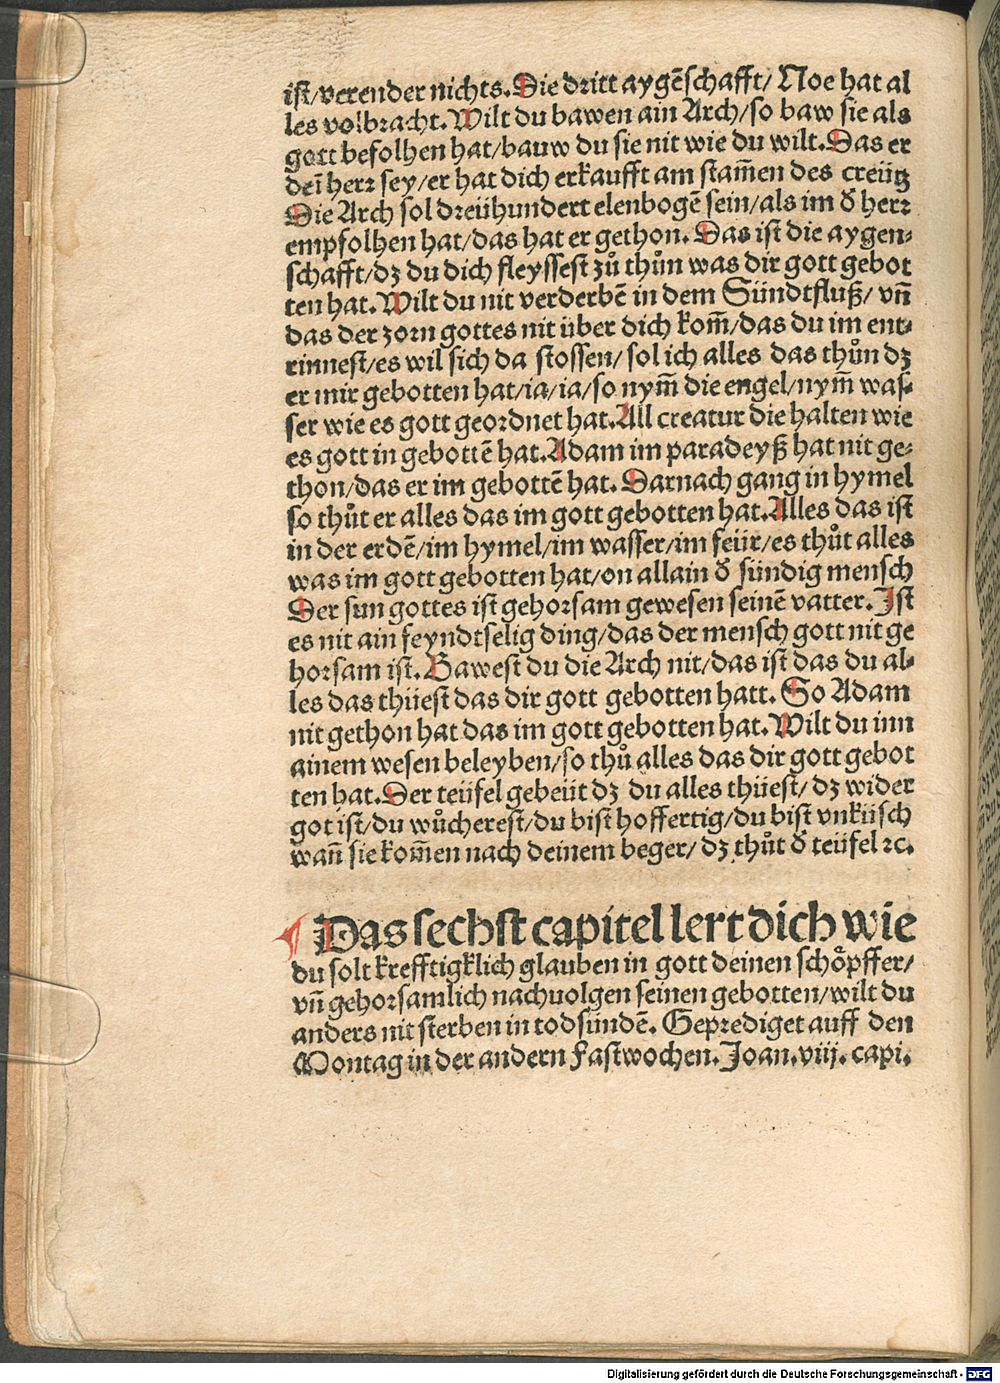 ist/verender nichts. Die dritt aygẽschafft/ Noe hat al
les volbracht. Wilt du bawen ain Arch/so baw sie als
gott befolhen hat/bauw du sie nit wie du wilt. Das er
dei᷈ herꝛ sey/er hat dich erkaufft am stam̃en des creütz
Die Arch sol dreühundert elenbogẽ sein/als im d᷈ herꝛ
empfolhen hat/das hat er gethon. Das ist die aygen⸗
schafft/dz du dich fleyssest zů thůn was dir gott gebot
ten hat. Wilt du nit verderbẽ in dem Sündtfluß/ vñ
das der zorn gottes nit über dich kom̃/das du im ent⸗
rinnest/es wil sich da stossen/ sol ich alles das thůn dz
er mir gebotten hat/ia/ia/so nym̃ die engel/nym̃ was⸗
ser wie es gott geordnet hat. All creatur die halten wie
es gott in gebottẽ hat. Adam im paradeyß hat nit ge⸗
thon/das er im gebottẽ hat. Darnach gang in hymel
so thůt er alles das im gott gebotten hat. Alles das ist
in der erdẽ/im hymel/im wasser/im feür/es thůt alles
was im gott gebotten hat/on allain d᷈ sündig mensch
Der sun gottes ist gehorsam gewesen seinẽ vatter. Ist
es nit ain feyndtselig ding/das der mensch gott nit ge
horsam ist. Bawest du die Arch nit/das ist das du al⸗
les das thüest das dir gott gebotten hatt. So Adam
nit gethon hat das im gott gebotten hat. Wilt du inn
ainem wesen beleyben/so thů alles das dir gott gebot
ten hat. Der teüfel gebeüt dz du alles thüest/ dz wider
got ist/du wůcherest/du bist hoffertig/du bist vnküsch
wañ sie kom̃en nach deinem beger/ dz thůt d᷈ teüfel ꝛc.
¶ Das sechst capitel lert dich wie
du solt krefftigklich glauben in gott deinen schöpffer/
vñ gehorsamlich nachuolgen seinen gebotten/wilt du
anders nit sterben in todsündẽ. Geprediget auff den
Montag in der andern Fastwochen. Joan. viij. capi.
Digitalisierung gefördert durch die Deutsche Forschungsgemeinschaft - DFG